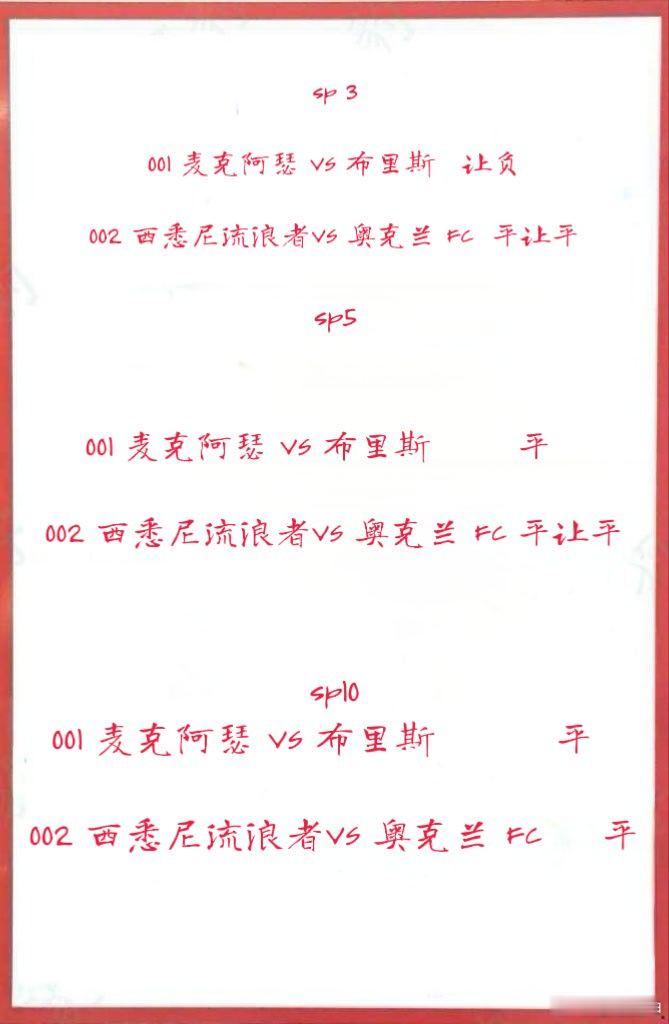 sp 3
001 麦克阿瑟 VS 布里斯 让负
002 西悉尼流浪者VS 奥克兰 FC 平让平
sp5
001 麦克阿瑟 VS 布里斯 平
002 西悉尼流浪者VS 奥克兰 FC 平让平
sp10
001 麦克阿瑟 VS 布里斯 平
002 西悉尼流浪者VS 奥克兰 FC 平